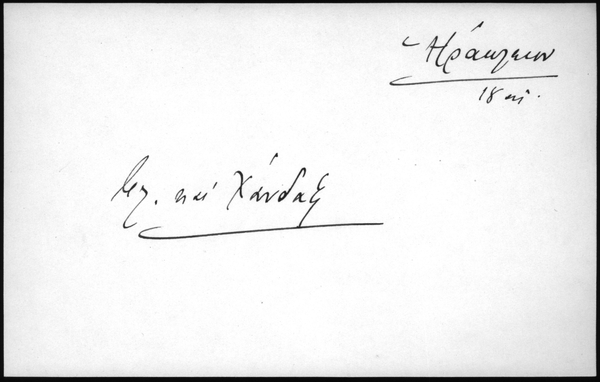 Ἡράκλειον
18 αἰ.
βλ. καὶ Χάνδαξ